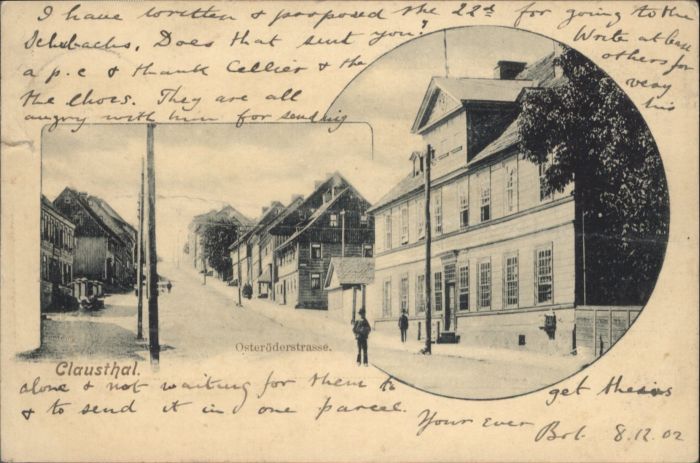 I have written & proposed the 22nd for going to the
Schbachs. Does that sent you?
Write at least
a p.c & thank Cellier & the
others for
the Choes. They are all
very
angry with him for sending
his
Osteröderstrasse.
Clausthal.
alone & not waiting for them to get theirs
& to send it in one parcel.
Your Ever
Bob. 8.12.02